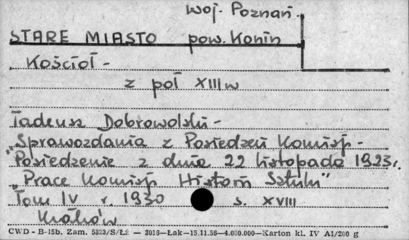 woj. Poznań.
STARE MIASTO pow. Konin
Kościół -
z poł XIII w
Tadeusz Dobrowolski -
"Sprawozdania z Posiedzeń Komisji -
Posiedzenie z dnia 22 listopada 1923 r.
"Prace Komisji Historii Sztuki"
Tom IV r. 1930 s. XVIII
Kraków
CWD - B-15b. Zam. 5823/S/Lż — 3016—Łak—15.11.56—4.000.000—Karton kl. IV A1/200 g